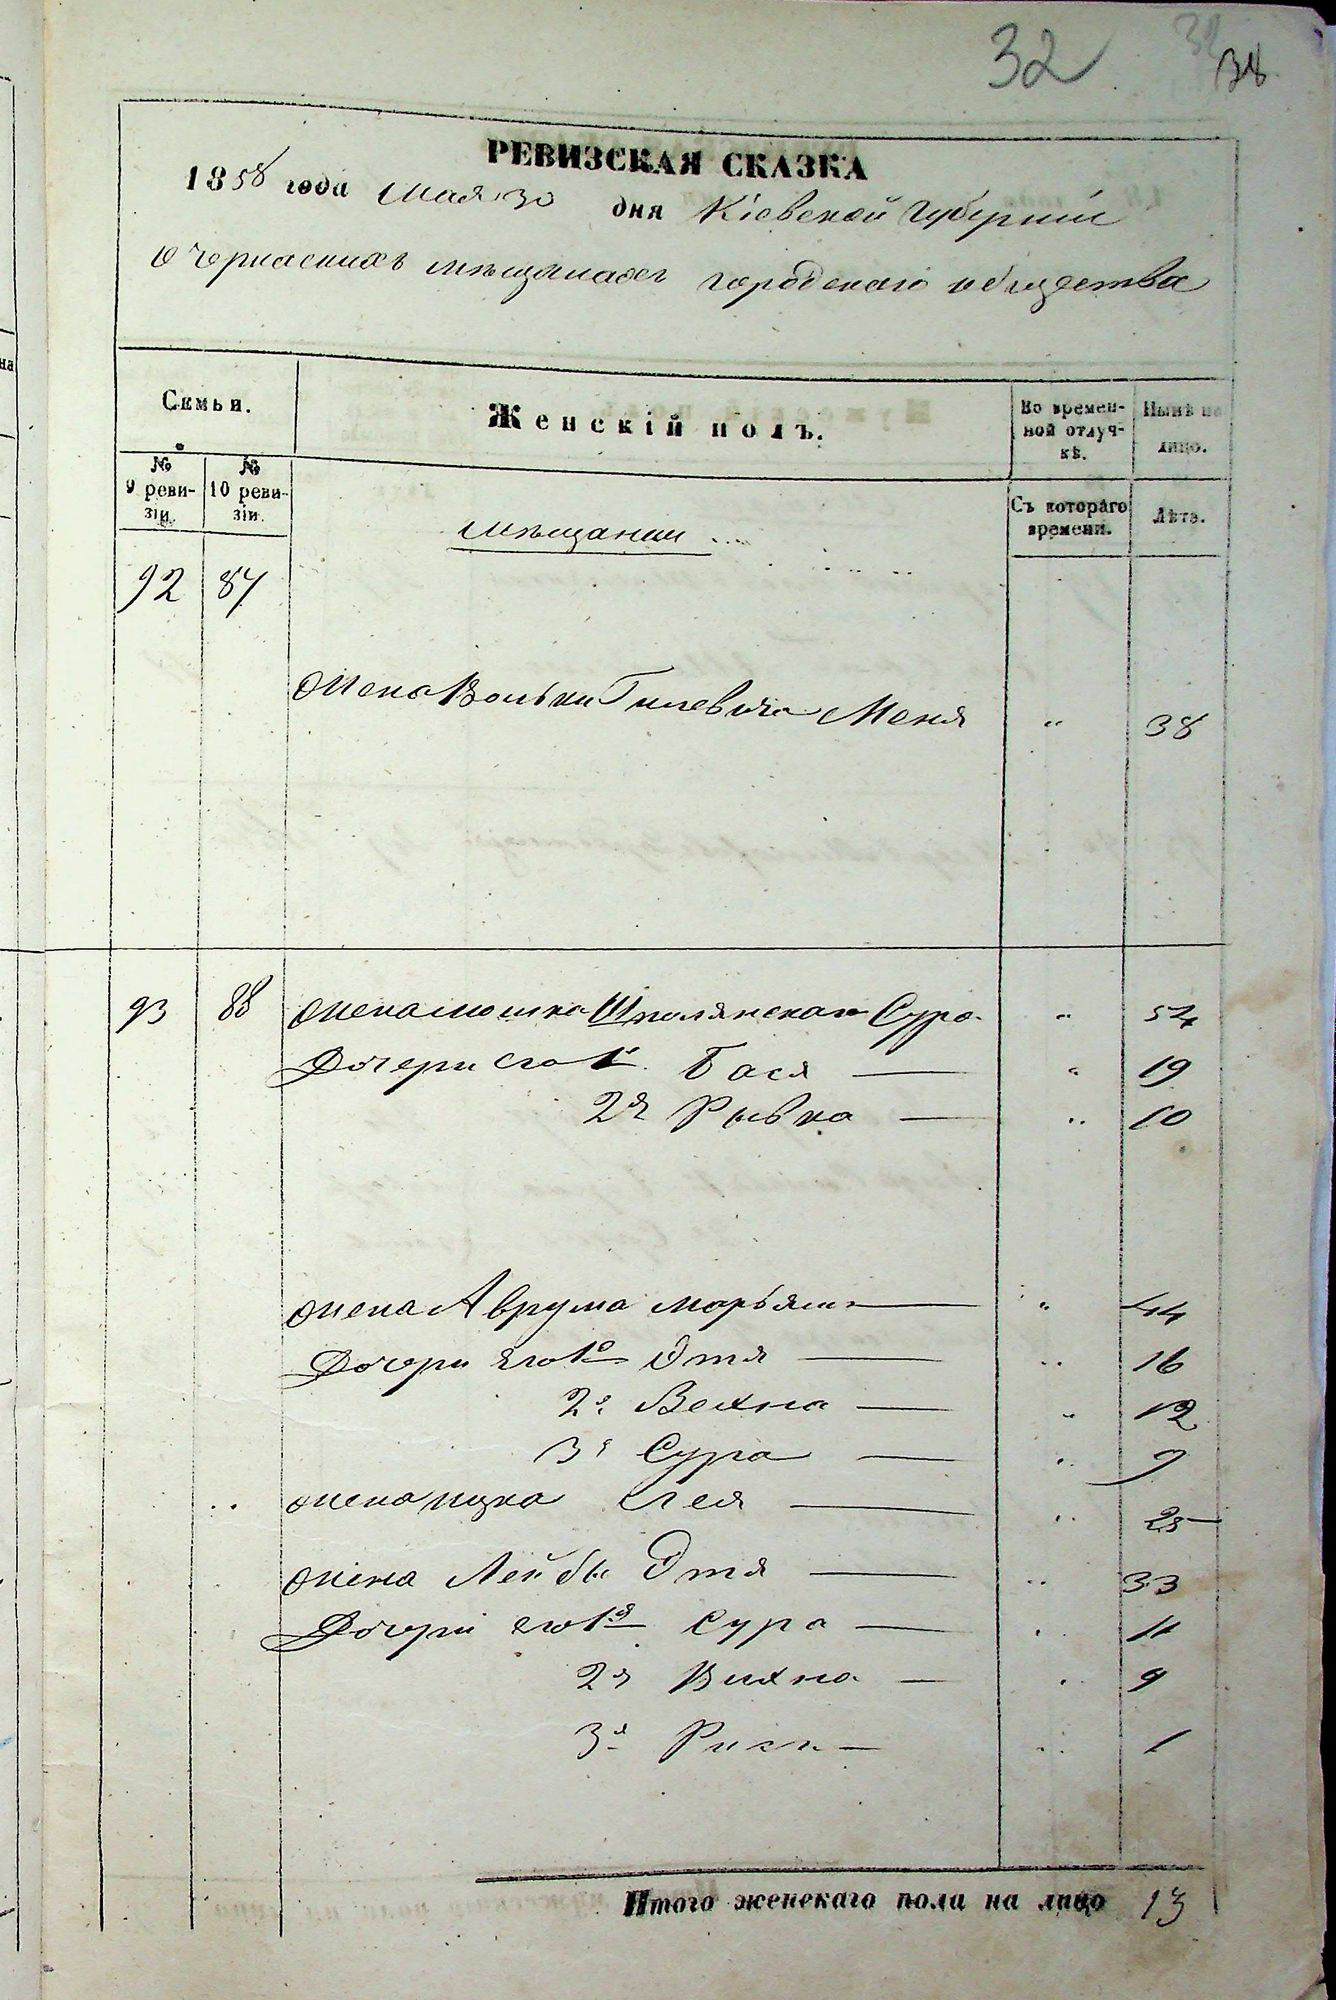 32 32 38
РЕВИЗСКАЯ СКАЗКА
1858 года Мая 30 дня Кіевской Губерніи
О Черкасскихъ мѣщанахъ городскаго общества
Семьи.
Женскій полъ.
Во времен-
ной отлуч-
кѣ.
Нынѣ на
лицо.
№
9 реви-
зіи.
№
10 реви-
зіи.
Съ котораго
времени.
Лѣта.
Мѣщанки
92 87
Жена Вольки Гилевича Меня " 38
93 88 Жена Мошка Шполянскаго Сура " 54
Дочери его 1я Бася — " 19
2я Рывка — " 10
Жена Аврума Марьям — " 44
Дочери его 1я Этя — " 16
2я Вехна — " 12
3я Сура — " 9
Жена Ицка Лея — " 25
Жена Лейбы Этя — " 33
Дочери его 1я Сура — " 11
2я Вихна — " 9
3я — " 1
Итого женскаго пола на лицо 13